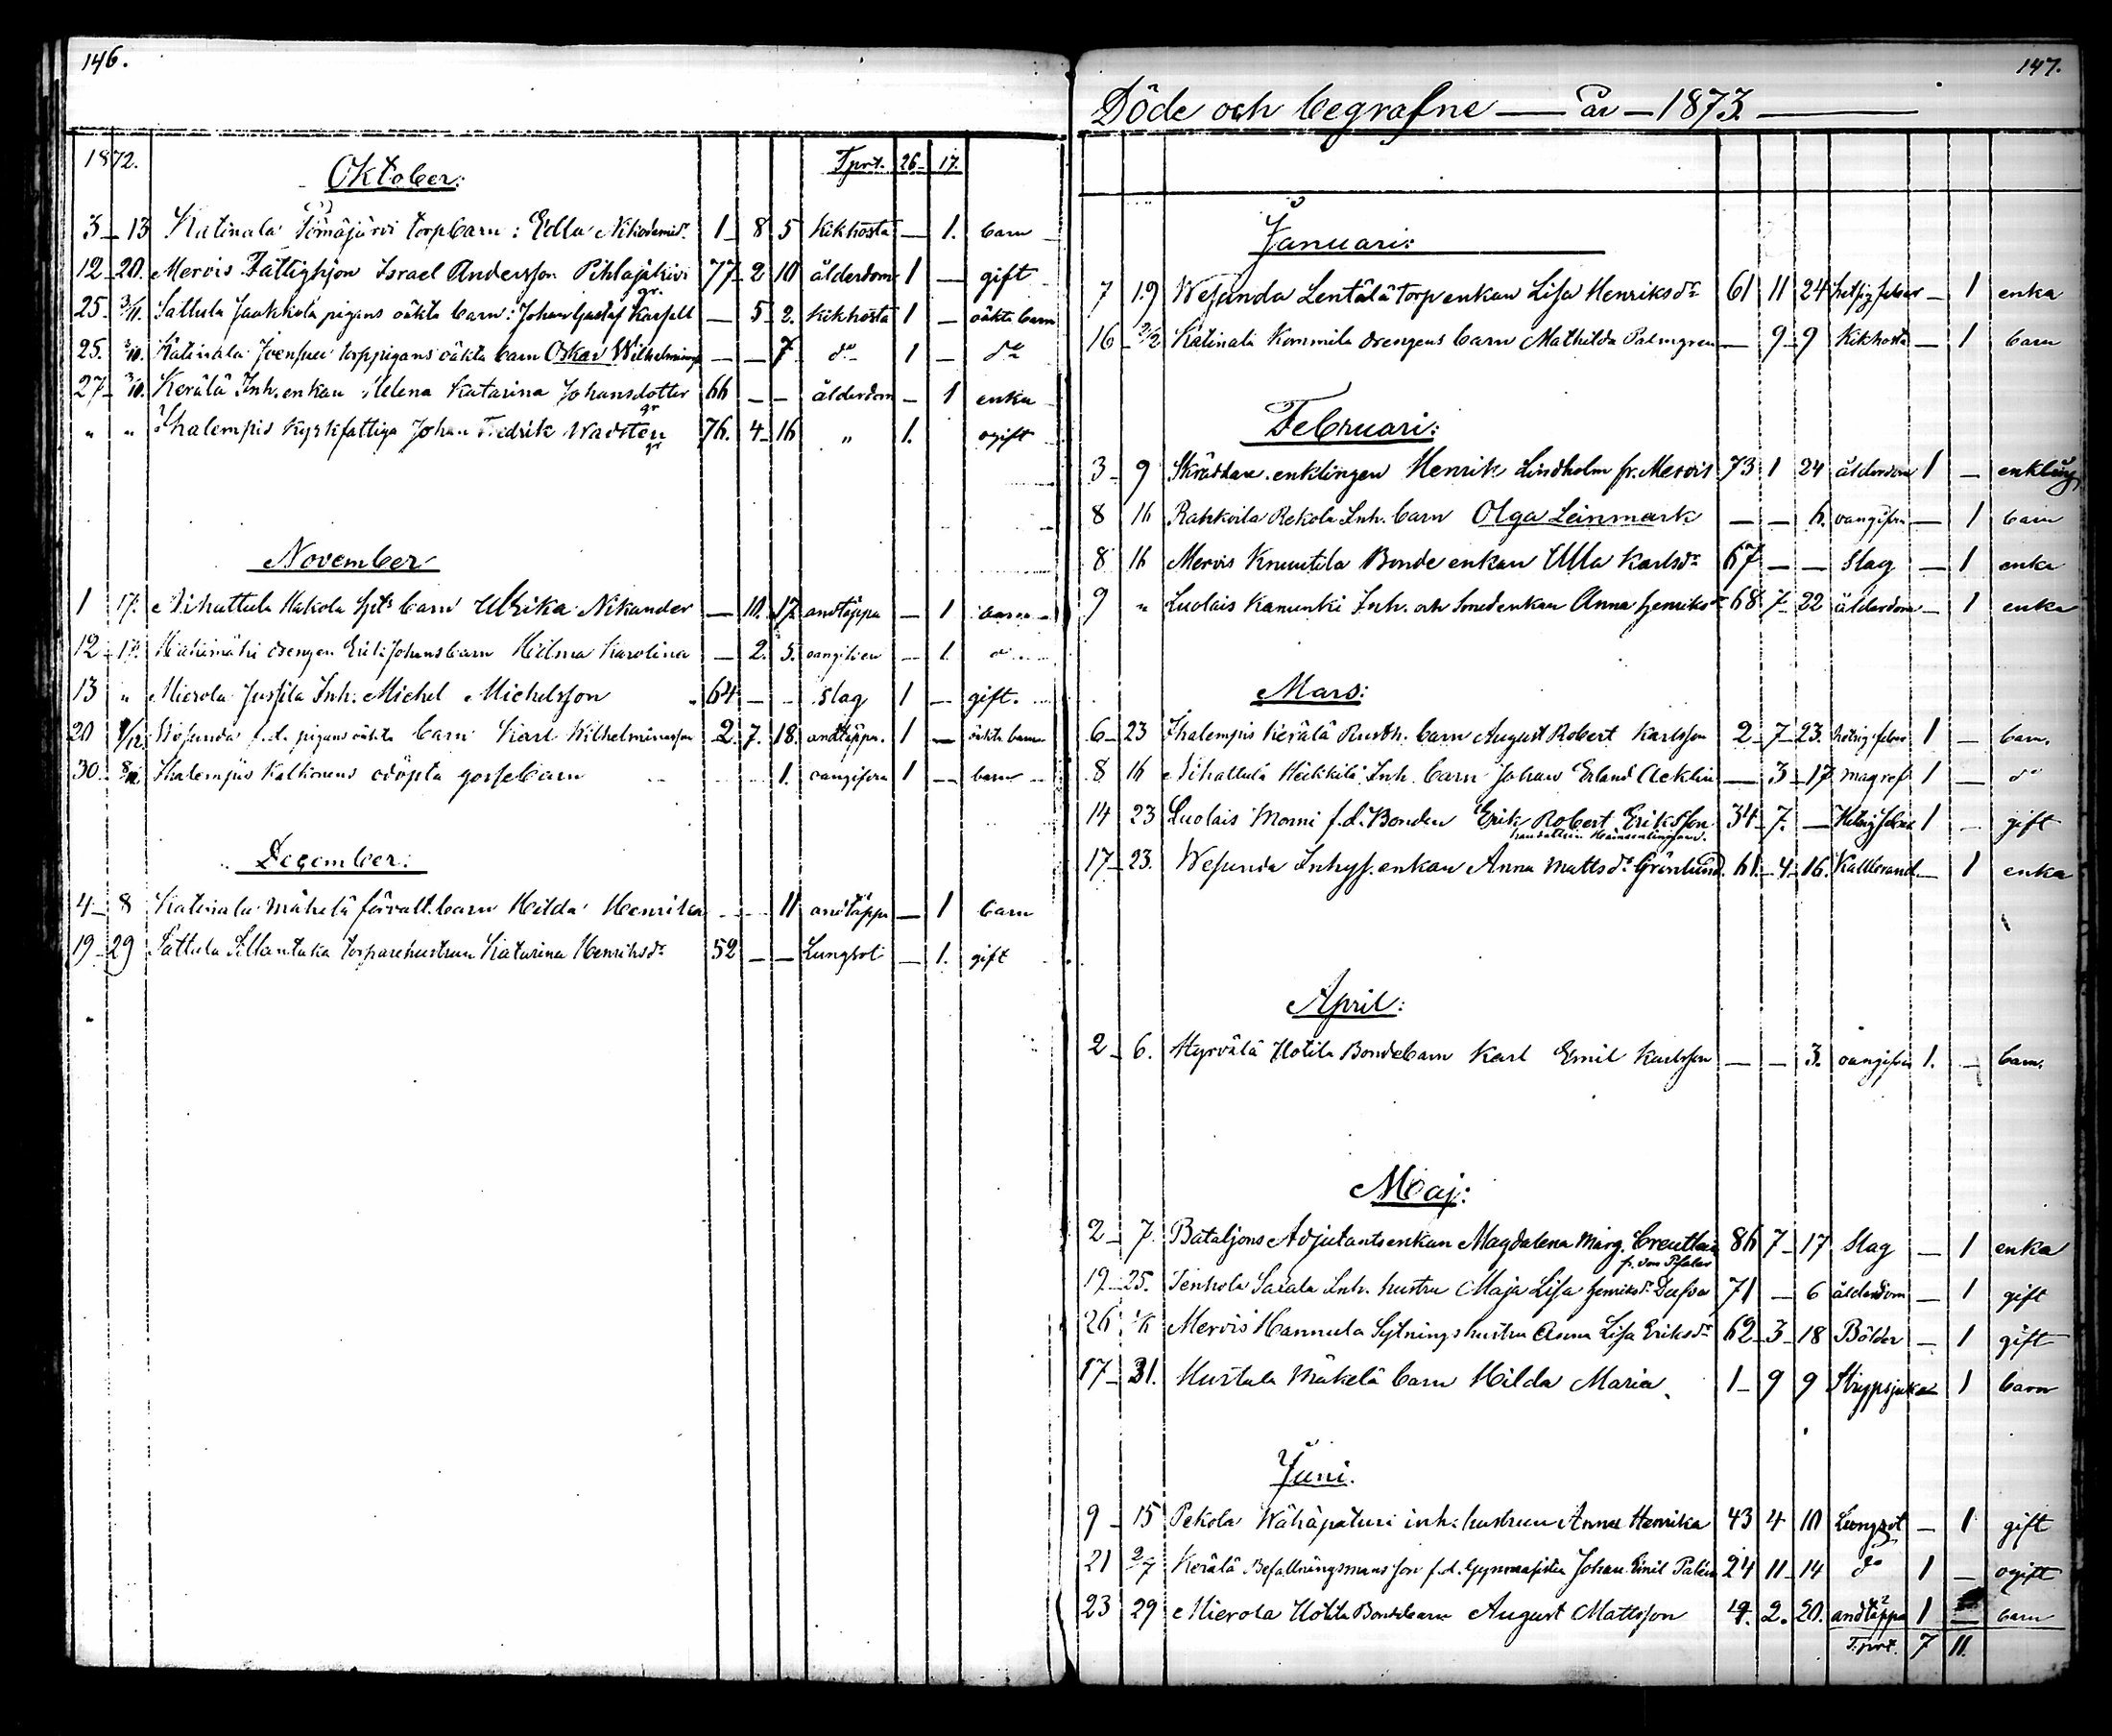 146.
1872.
Oktober:
Tprt. 26 17.
3 – 13 Katinala torpbarn: Edla Nikodemid:r 1 – 8 5 kikhosta — 1. barn
12 – 20. Mervis Fattighjon Israel Andersson Pihlajakivi 77 – 2 10 ålderdom 1 — gift
gr.
25. 3/11. Sattula Jaakkola pigans oäkta barn: Johan Gustaf Karsell — 5 2. kikhosta 1 — oäkta barn
25. Katinala Joensuu torppigans oäkta barn Oskar — — 7 d:o 1 — d:o
27 Kerälä Inh. enkan Helena Katarina Johansdotter 66 — — ålderdom – 1 enka
gr
" " Ihalempis Kyrkfattiga Johan Fredrik Wadsten 76. 4 – 16 " 1. ogift
gr
November
1 17. Nihattula Hakola barn Ulrika Nikander — 10. 17 andtäppa — 1 barn
12 – 17. drengen Erik Johans barn Hilma Karolina — 2. 5. — 1. d:o
13 " Mierola Jussila Inh. Michel Michelsson 64 — – slag 1 — gift.
20 1/12. Wesunda f.d. pigans oäkta barn Karl Wilhelminasson 2. 7. 18. andtäppa. 1 — oäkta barn
30. 8/12 Ihalempis Kalkonens odöpta gossebarn 1. oangifven 1 — barn
December:
4 – 8 Katinala Mäkelä förvalt. barn Hilda Henrika 11 andtäppa — 1 barn
19 – 29 Sattula Torparehustrun Katarina Henriksd:r 52 — — Lungsot — 1. gift
147.
Döde och begrafne — år — 1873. —
Januari:
7 19 Wesunda Lentälä torpenkan Lisa Henriksd:r 61 11 24 — 1 enka
16 – 2/2 Katinala Kommila drengens barn Mathilda Palmgren — 9 – 9 Kikhosta — 1 barn
Februari:
3 – 9 Skräddare enklingen Henrik Lindholm fr. Mervis 73 1 24 ålderdom 1 — enkling
8 16 Rahkoila Rekola Inh. barn Olga Leinmark — — 6. oangifven — 1 barn
8 16 Mervis Knuutila Bonde enkan Ulla Karlsd:r 67 — — Slag — 1 enka
9 " Luolais Kanunki Inh. och Smedenkan Anna Henriksd:r 68 7 – 22 ålderdom — 1 enka
Mars:
6 – 23 Ihalempis Kerälä Rusth. barn August Robert Karlsson 2 – 7 – 23. hetsig feber 1 — barn.
8 16 Nihattula Heikkilä Inh. barn Johan Erland Acklin — 3 – 17 magref 1 — d:o
14 23 Luolais Monni f.d. Bonden Erik Robert Eriksson 34 – 7. — Hetsig feber 1 — gift
17 – 23. Wesunda Inhys. enkan Anna Mattsd:r Grönlund. 61. – 4 – 16. Kallbrand — 1 enka
April:
2 – 6. Hyrvälä Uotila Bondebarn Karl Emil Karlsson — — 3. oangifven 1. — barn.
Maj:
2 – 7. Bataljons Adjutantsenkan Magdalena Marg. Creutlein 86 7 – 17 Slag — 1 enka
f. von Pfaler
19 – 25. Tenhola Sarala Inh. hustru Maja Lisa Henriksd:r 71 — 6 ålderdom — 1 gift
26 1/6 Mervis Hannula Sytningshustru Anna Lisa Eriksd:r 62 – 3 – 18 Bölder — 1 gift
17 – 31. Hurtala Mäkelä barn Hilda Maria 1 – 9 9 Strypsjuka 1 barn
Juni.
9 – 15 Pekola Wähäpaturi inh. hustrun Anna Henrika 43 4 10 Lungsot — 1 gift
21 2/7 Kerälä Befallningsmans son f.d. Gymnasisten Johan Emil Palén 24 11 – 14 d:o 1 — ogift
23 29 Mierola Uotila Bondebarn August Mattsson 4. 2. 20. andtäppa 1 — barn
Tprt. 7 11.